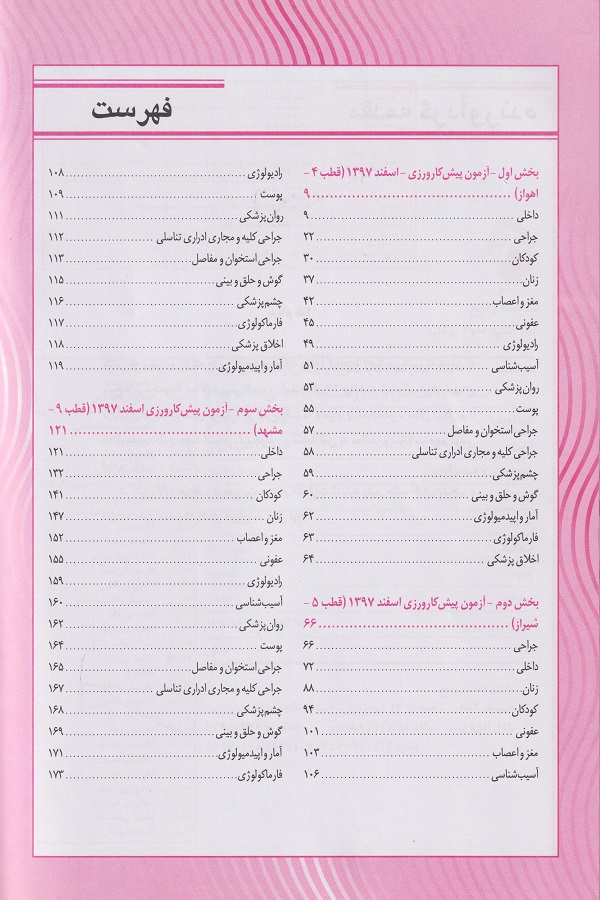 فهرست
بخش اول - آزمون پیش‌کارورزی - اسفند ۱۳۹۷ (قطب ۴ -
اهواز) ........ ۹
داخلی ........ ۹
جراحی ........ ۲۲
کودکان ........ ۳۰
زنان ........ ۳۷
مغز و اعصاب ........ ۴۲
عفونی ........ ۴۵
رادیولوژی ........ ۴۹
آسیب‌شناسی ........ ۵۱
روان‌پزشکی ........ ۵۳
پوست ........ ۵۵
جراحی استخوان و مفاصل ........ ۵۷
جراحی کلیه و مجاری ادراری تناسلی ........ ۵۸
چشم‌پزشکی ........ ۵۹
گوش و حلق و بینی ........ ۶۰
آمار و اپیدمیولوژی ........ ۶۲
فارماکولوژی ........ ۶۳
اخلاق پزشکی ........ ۶۴
بخش دوم - آزمون پیش‌کارورزی اسفند ۱۳۹۷ (قطب ۵ -
شیراز) ........ ۶۶
جراحی ........ ۶۶
داخلی ........ ۷۲
زنان ........ ۸۸
کودکان ........ ۹۴
عفونی ........ ۱۰۱
مغز و اعصاب ........ ۱۰۳
آسیب‌شناسی ........ ۱۰۶
رادیولوژی ........ ۱۰۸
پوست ........ ۱۰۹
روان‌پزشکی ........ ۱۱۱
جراحی کلیه و مجاری ادراری تناسلی ........ ۱۱۲
جراحی استخوان و مفاصل ........ ۱۱۳
گوش و حلق و بینی ........ ۱۱۵
چشم‌پزشکی ........ ۱۱۶
فارماکولوژی ........ ۱۱۷
اخلاق پزشکی ........ ۱۱۸
آمار و اپیدمیولوژی ........ ۱۱۹
بخش سوم - آزمون پیش‌کارورزی اسفند ۱۳۹۷ (قطب ۹ -
مشهد) ........ ۱۲۱
داخلی ........ ۱۲۱
جراحی ........ ۱۳۲
کودکان ........ ۱۴۱
زنان ........ ۱۴۷
مغز و اعصاب ........ ۱۵۲
عفونی ........ ۱۵۵
رادیولوژی ........ ۱۵۹
آسیب‌شناسی ........ ۱۶۰
روان‌پزشکی ........ ۱۶۲
پوست ........ ۱۶۴
جراحی استخوان و مفاصل ........ ۱۶۵
جراحی کلیه و مجاری ادراری تناسلی ........ ۱۶۷
چشم‌پزشکی ........ ۱۶۸
گوش و حلق و بینی ........ ۱۶۹
آمار و اپیدمیولوژی ........ ۱۷۱
فارماکولوژی ........ ۱۷۳